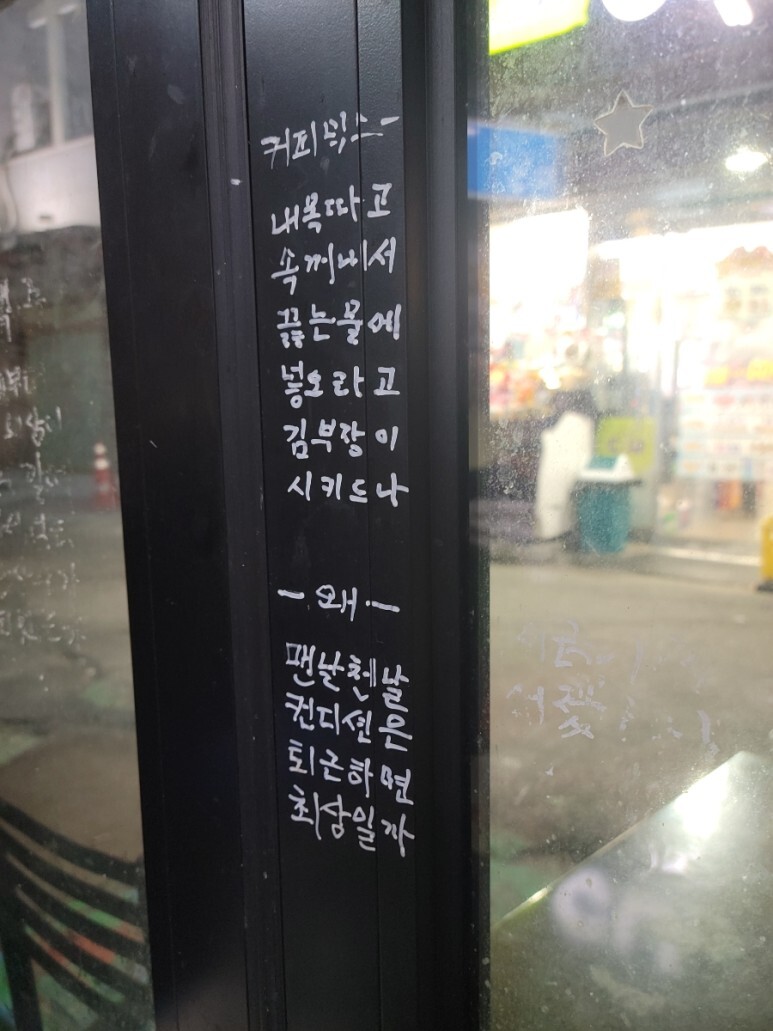 커피믹스-
내목따고
속꺼내서
끓는물에
넣오라고
김부장이
시키드나
-왜-
맨날천날
컨디션은
퇴근하면
최상일까